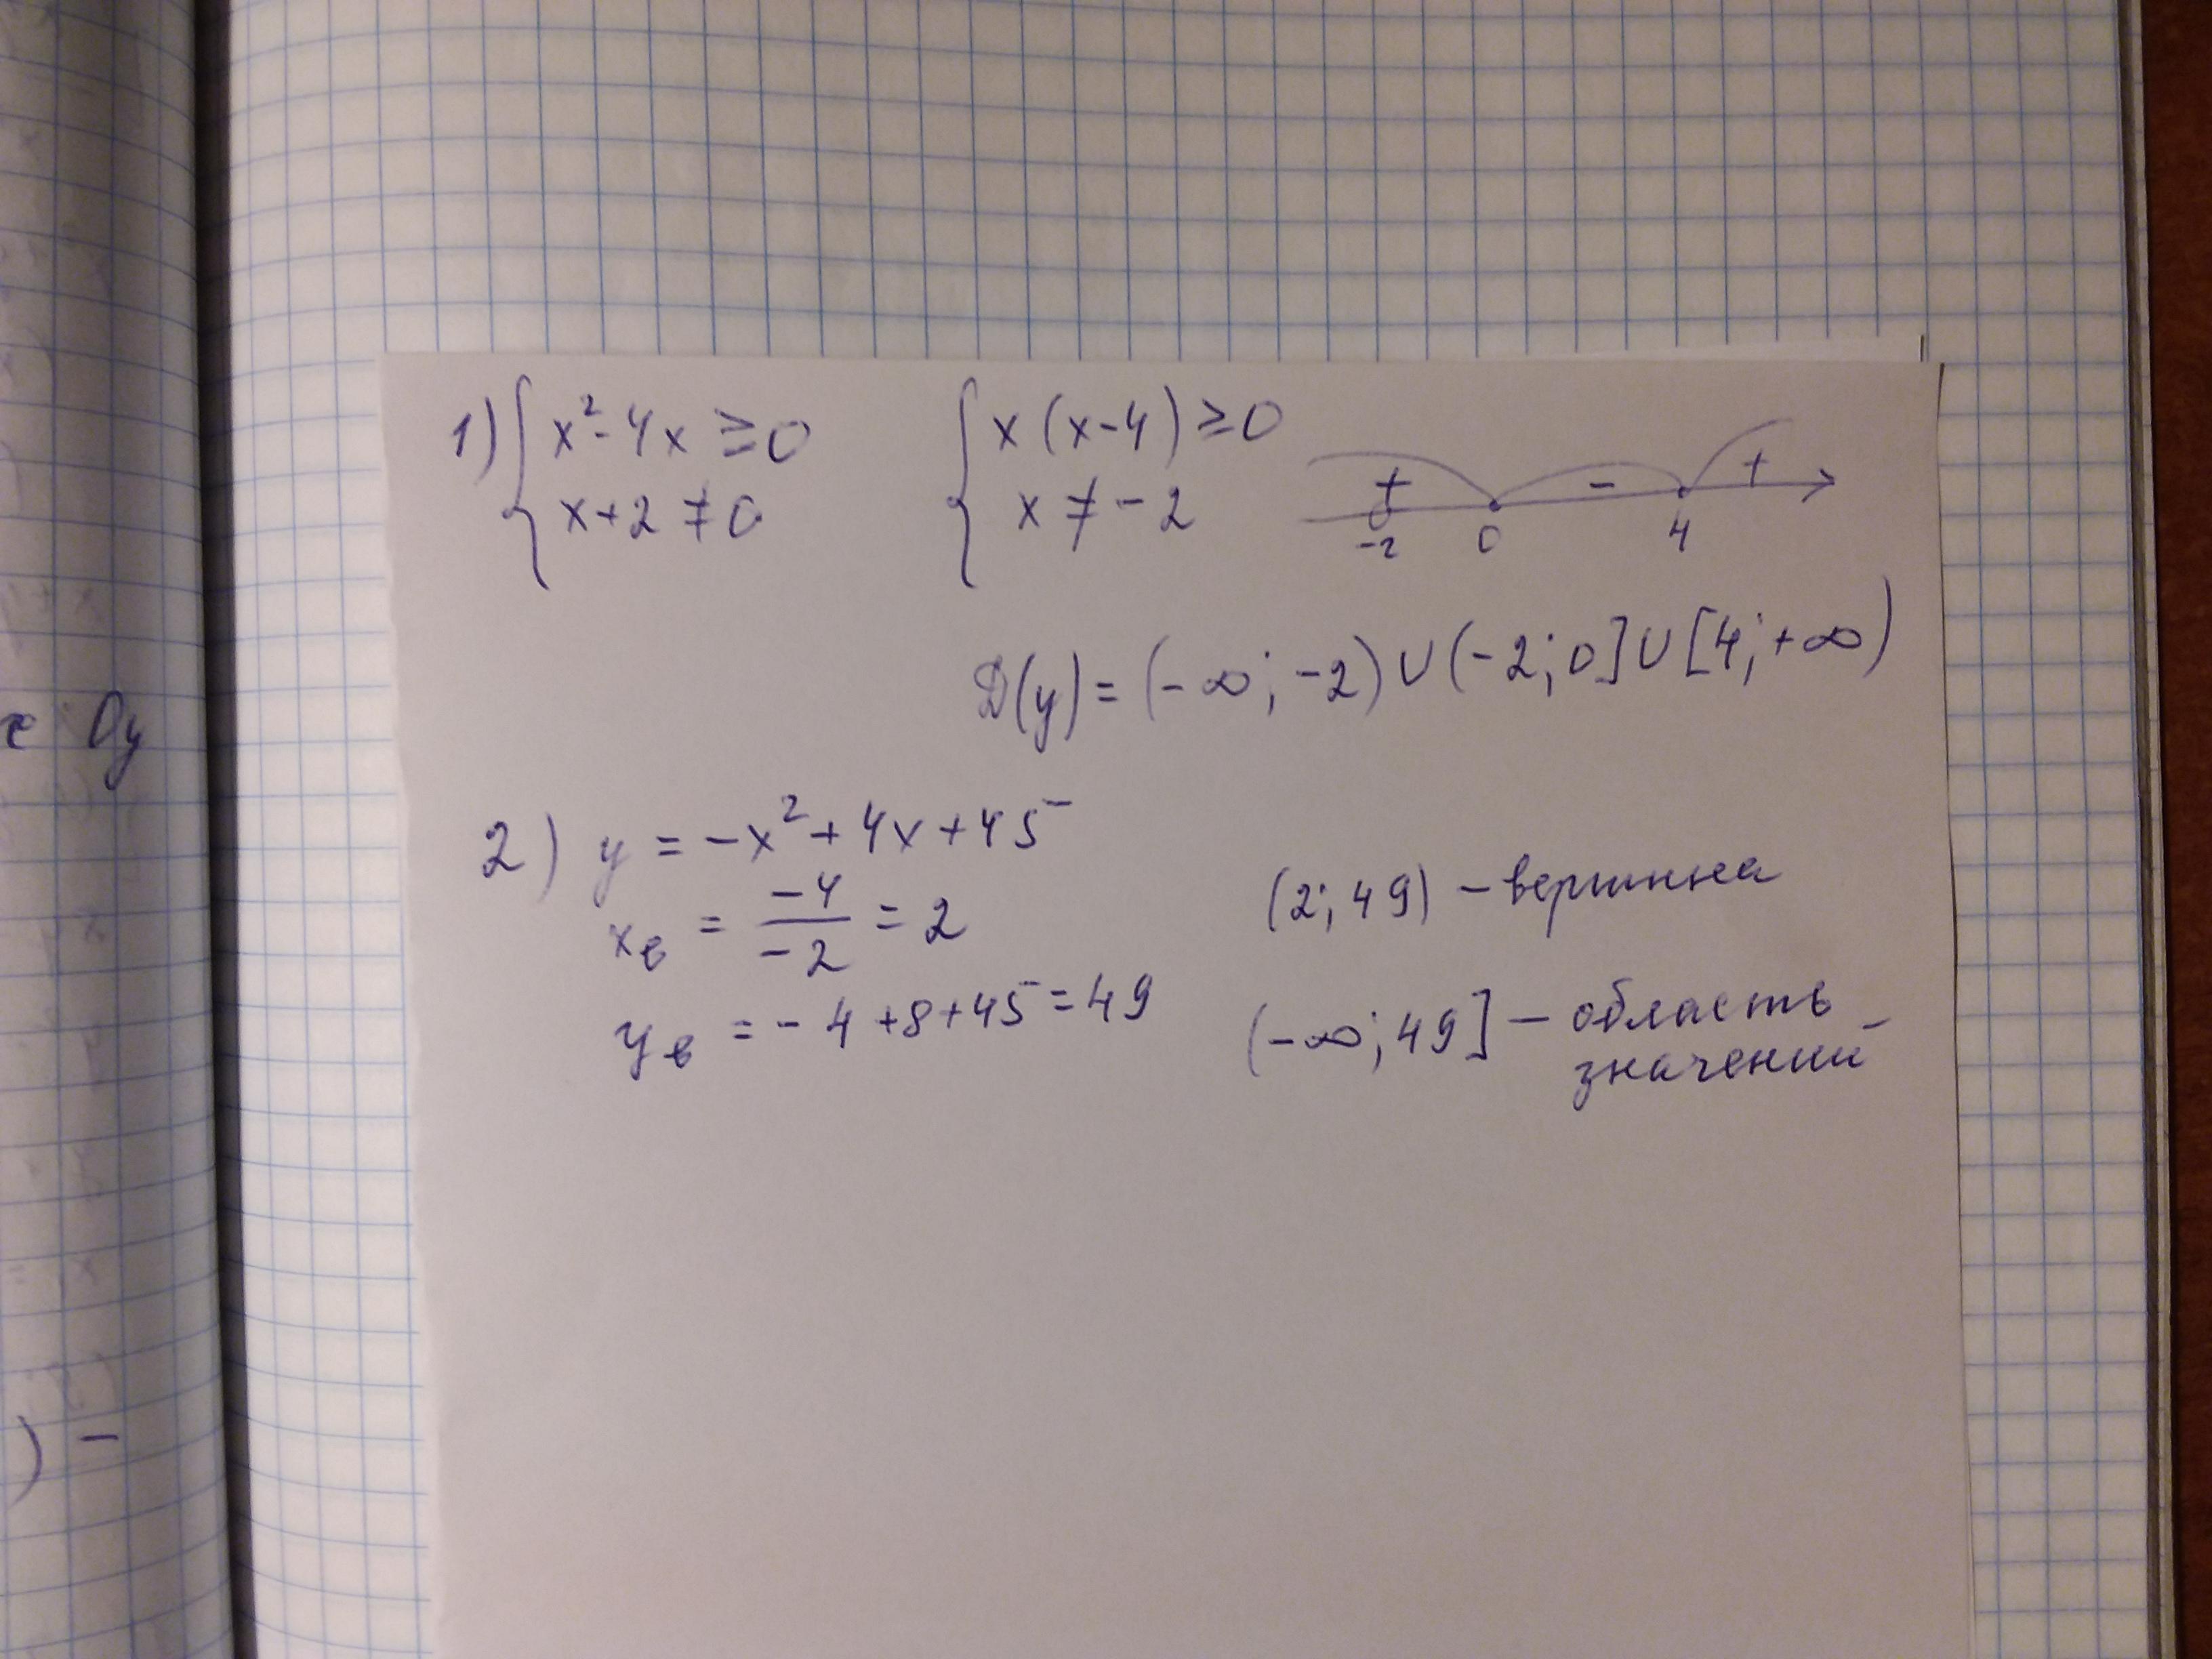 1) { x² - 4x ≥ 0
x + 2 ≠ 0
{ x (x - 4) ≥ 0
x ≠ - 2
+ - +
-2 0 4
D(y) = (- ∞; -2) ∪ (-2; 0] ∪ [4; +∞)
2) y = -x² + 4x + 45
x в = -4 / -2 = 2
y в = - 4 + 8 + 45 = 49
(2; 49) - вершина
(-∞; 49] - область
значений
Oy
) -